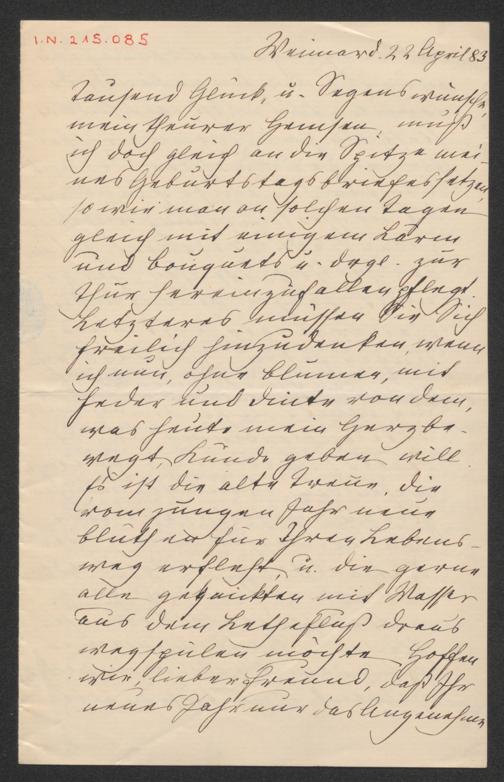 I.N. 215.085
Weimar d. 22 April 83
Tausend Glück, u. Segenswünsche,
mein theurer Hemsen, muß
ich doch gleich an die Spitze mei-
nes Geburtstagsbriefes setzen,
so wie man an solchen Tagen
gleich mit einigem Lärm
und bouquets u. drgl. zur
Thür hereinzufallen pflegt
Letzteres müssen Sie Sich
freilich hinzudenken, wenn
ich nun, ohne Blumen, mit
Feder und Dinte von dem,
was heute mein Herz be-
wegt, Kunde geben will.
Es ist die alte Treue, die
vom jungen Jahr neue
Blüthen für Ihren Lebens-
weg erfleht, u. die gerne
alle mit Wasser
aus dem Lethefluß draus
wegspülen möchte. Hoffen
wir, lieber Freund, daß Ihr
neues Jahr nur das Angenehme